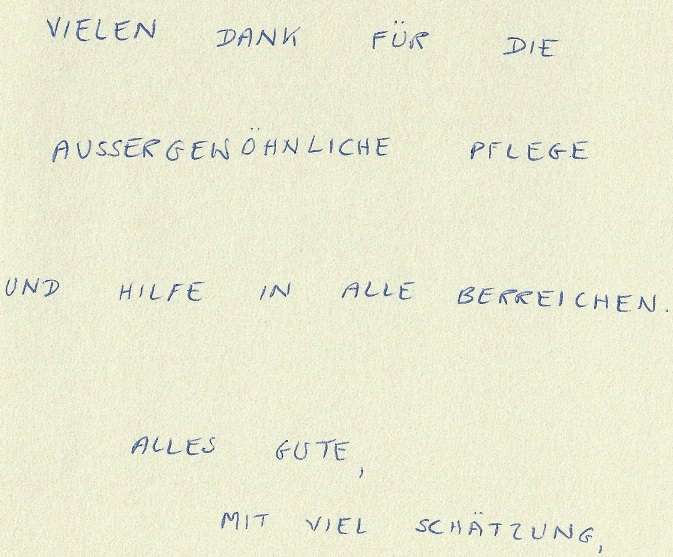 VIELEN DANK FÜR DIE
AUSSERGEWÖHNLICHE PFLEGE
UND HILFE IN ALLE BERREICHEN.
ALLES GUTE,
MIT VIEL SCHÄTZUNG,